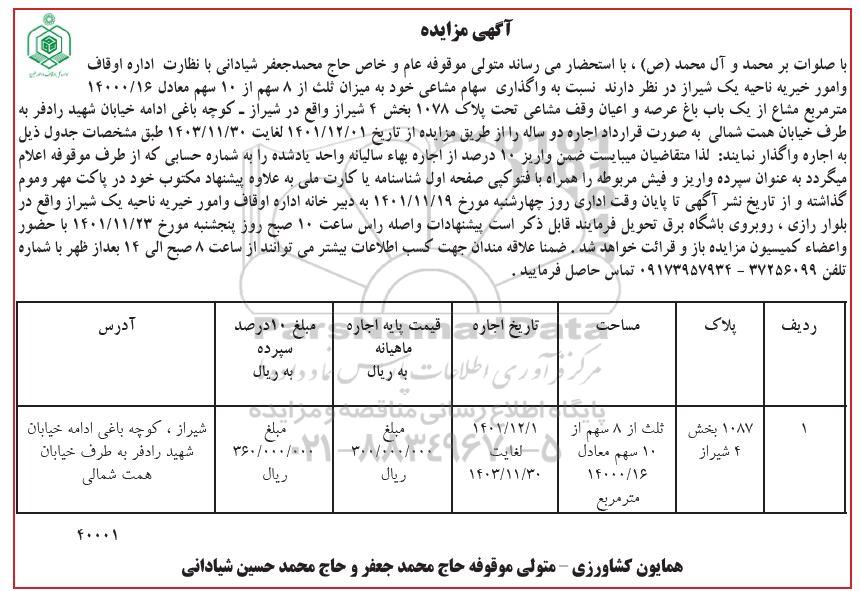 آگهی مزایده
با صلوات بر محمد و آل محمد (ص) ، با استحضار می رساند متولی موقوفه عام و خاص حاج محمدجعفر شیادانی با نظارت اداره اوقاف
وامور خیریه ناحیه یک شیراز در نظر دارند نسبت به واگذاری سهام مشاعی خود به میزان ثلث از ۸ سهم از ۱۰ سهم معادل ۱۴۰۰۰/۱۶
مترمربع مشاع از یک باب باغ عرصه و اعیان وقف مشاعی تحت پلاک ۱۰۷۸ بخش ۴ شیراز واقع در شیراز ـ کوچه باغی ادامه خیابان شهید رادفر به
طرف خیابان همت شمالی به صورت قرارداد اجاره دو ساله را از طریق مزایده از تاریخ ۱۴۰۱/۱۲/۰۱ لغایت ۱۴۰۳/۱۱/۳۰ طبق مشخصات جدول ذیل
به اجاره واگذار نمایند: لذا متقاضیان میبایست ضمن واریز ۱۰ درصد از اجاره بهاء سالیانه واحد یادشده را به شماره حسابی که از طرف موقوفه اعلام
میگردد به عنوان سپرده واریز و فیش مربوطه را همراه با فتوکپی صفحه اول شناسنامه یا کارت ملی به علاوه پیشنهاد مکتوب خود در پاکت مهر وموم
گذاشته و از تاریخ نشر آگهی تا پایان وقت اداری روز چهارشنبه مورخ ۱۴۰۱/۱۱/۱۹ به دبیر خانه اداره اوقاف وامور خیریه ناحیه یک شیراز واقع در
بلوار رازی ، روبروی باشگاه برق تحویل فرمایند قابل ذکر است پیشنهادات واصله راس ساعت ۱۰ صبح روز پنجشنبه مورخ ۱۴۰۱/۱۱/۲۳ با حضور
واعضاء کمیسیون مزایده باز و قرائت خواهد شد . ضمنا علاقه مندان جهت کسب اطلاعات بیشتر می توانند از ساعت ۸ صبح الی ۱۴ بعداز ظهر با شماره
تلفن ۳۷۲۵۶۰۹۹ - ۰۹۱۷۳۹۵۷۹۳۴ تماس حاصل فرمایید .
ردیف پلاک مساحت تاریخ اجاره قیمت پایه اجاره ماهیانه به ریال مبلغ ۱۰درصد سپرده به ریال آدرس
۱ ۱۰۸۷ بخش ۴ شیراز ثلث از ۸ سهم از ۱۰ سهم معادل ۱۴۰۰۰/۱۶ مترمربع ۱۴۰۱/۱۲/۱ لغایت ۱۴۰۳/۱۱/۳۰ مبلغ ۳۰۰/۰۰۰/۰۰۰ ریال مبلغ ۳۶۰/۰۰۰/۰۰۰ ریال شیراز ، کوچه باغی ادامه خیابان شهید رادفر به طرف خیابان همت شمالی
ParsNamadData
مرکز فرآوری اطلاعات پارس نماد داده ها
پایگاه اطلاع رسانی مناقصه و مزایده
۰۲۱-۸۸۳۴۹۶۷۰-۵
۴۰۰۰۱
همایون کشاورزی – متولی موقوفه حاج محمد جعفر و حاج محمد حسین شیادانی